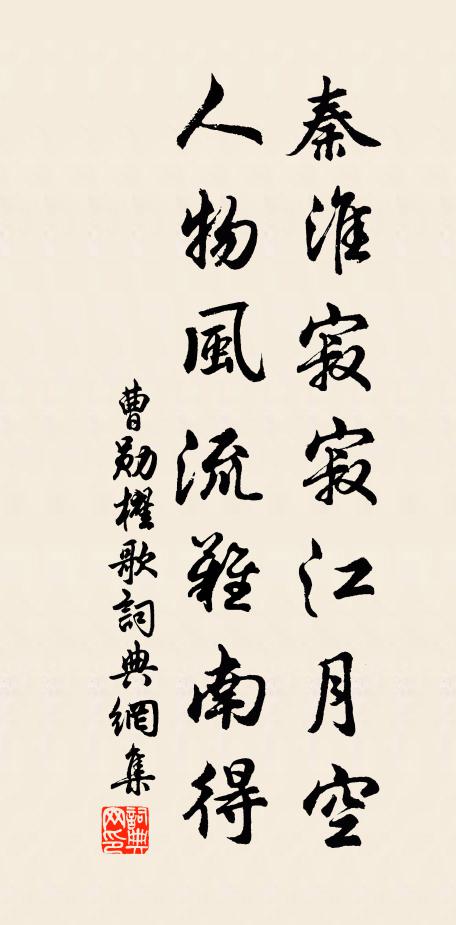 秦淮寂寂江月空
人物風流難南得
曹勛櫂歌詞典網集
詞典網印